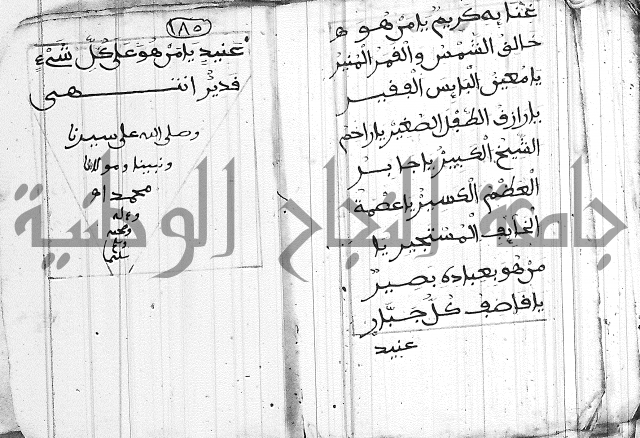 غنا به كريم يا من هو
خالق الشمس والقمر المنير
يا معين البايس الفقير
يا رازق الطفل الصغير يا راحم
الشيخ الكبير يا جابر
العظم الكسير يا عصمة
الخايف المستجير يا
من هو بعباده بصير
يا قاصف كل جبار
عنيد
١٨٥
عنيد يا من هو على كل شيء
قدير انتهى
وصلى الله على سيدنا
ونبينا ومولانا
محمد
وءاله
وصحبه
جامعة النجاح الوطنية